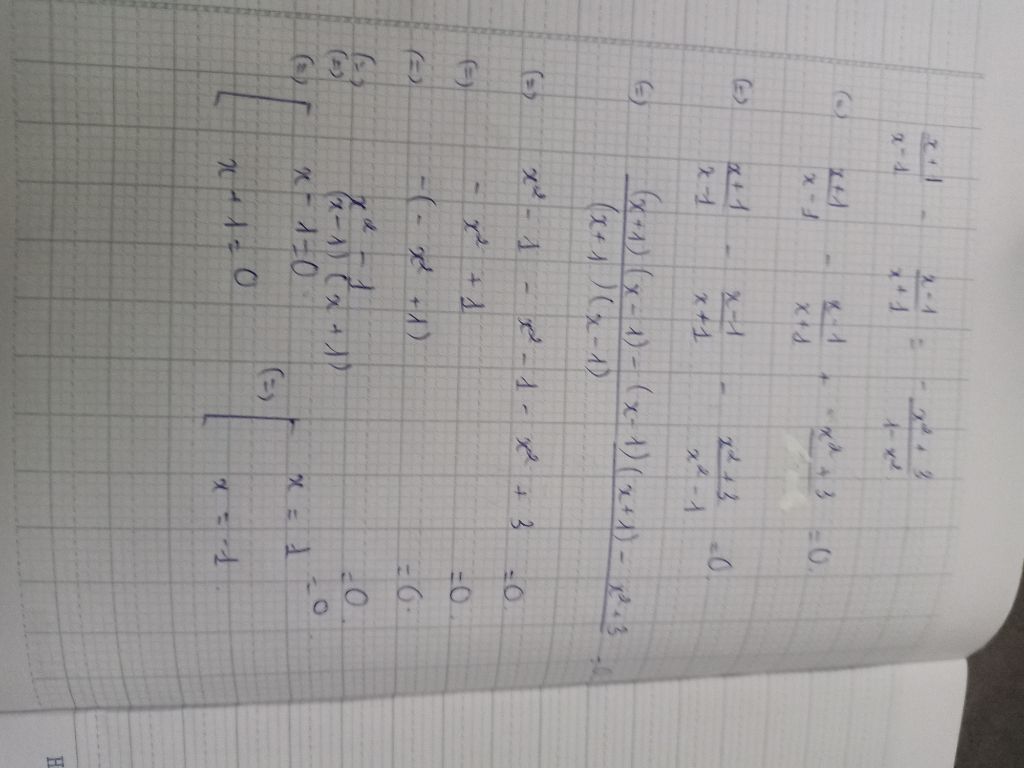 x+1/x-1 - x-1/x+1 = - x²+3/1-x²
(=) x+1/x-1 - x-1/x+1 + -x²+3 = 0.
(=) x+1/x-1 - x-1/x+1 - x²+3/x²-1 = 0.
(=) (x+1)(x-1) - (x-1)(x+1) - x²+3/(x+1)(x-1)
(=) x² - 1 - x² - 1 - x² + 3 = 0
(=) - x² + 1 = 0.
(=) -(- x² + 1) = 0.
(=) x² - 1 = 0.
(=) (x-1)(x+1) = 0
(=) [ x - 1 = 0 (=) [ x = 1
x + 1 = 0 x = -1
H